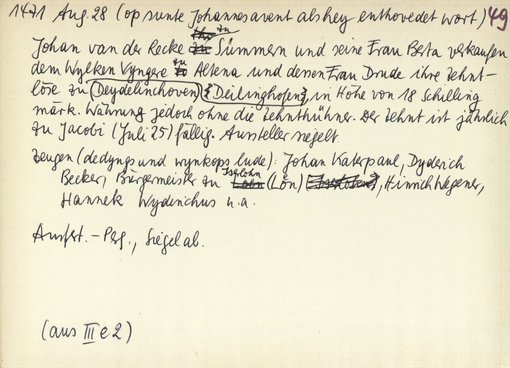 1471 Aug. 28 (op sunte Johannesavent als hey enthovedet wort) 49
Johan van der Recke zu Sümmern und seine Frau Berta verkaufen
dem Wylken Vyngere zu Altena und dessen Frau Drude ihre Zehnt-
löse zu Deydelinchoven (Deilinghofen), in Höhe von 18 Schilling
märk. Währung jedoch ohne die Zehnthühner. Der Zehnt ist jährlich
zu Jacobi (Juli 25) fällig. Aussteller siegelt.
Zeugen (dedyngs und wynkops lude): Johan Katerpaul, Dyderich
Becker, Bürgermeister zu Iserlohn (Lön), Hinrich Wegener,
Hannek Wydenchus u.a.
Ausfert. - Perg., Siegel ab.
(aus III e 2)